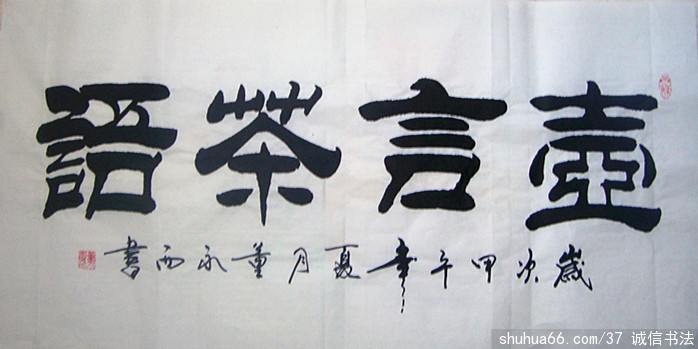 壺言茶語
歲次甲午年夏月董永西書
shuhua66.com/37 诚信书法